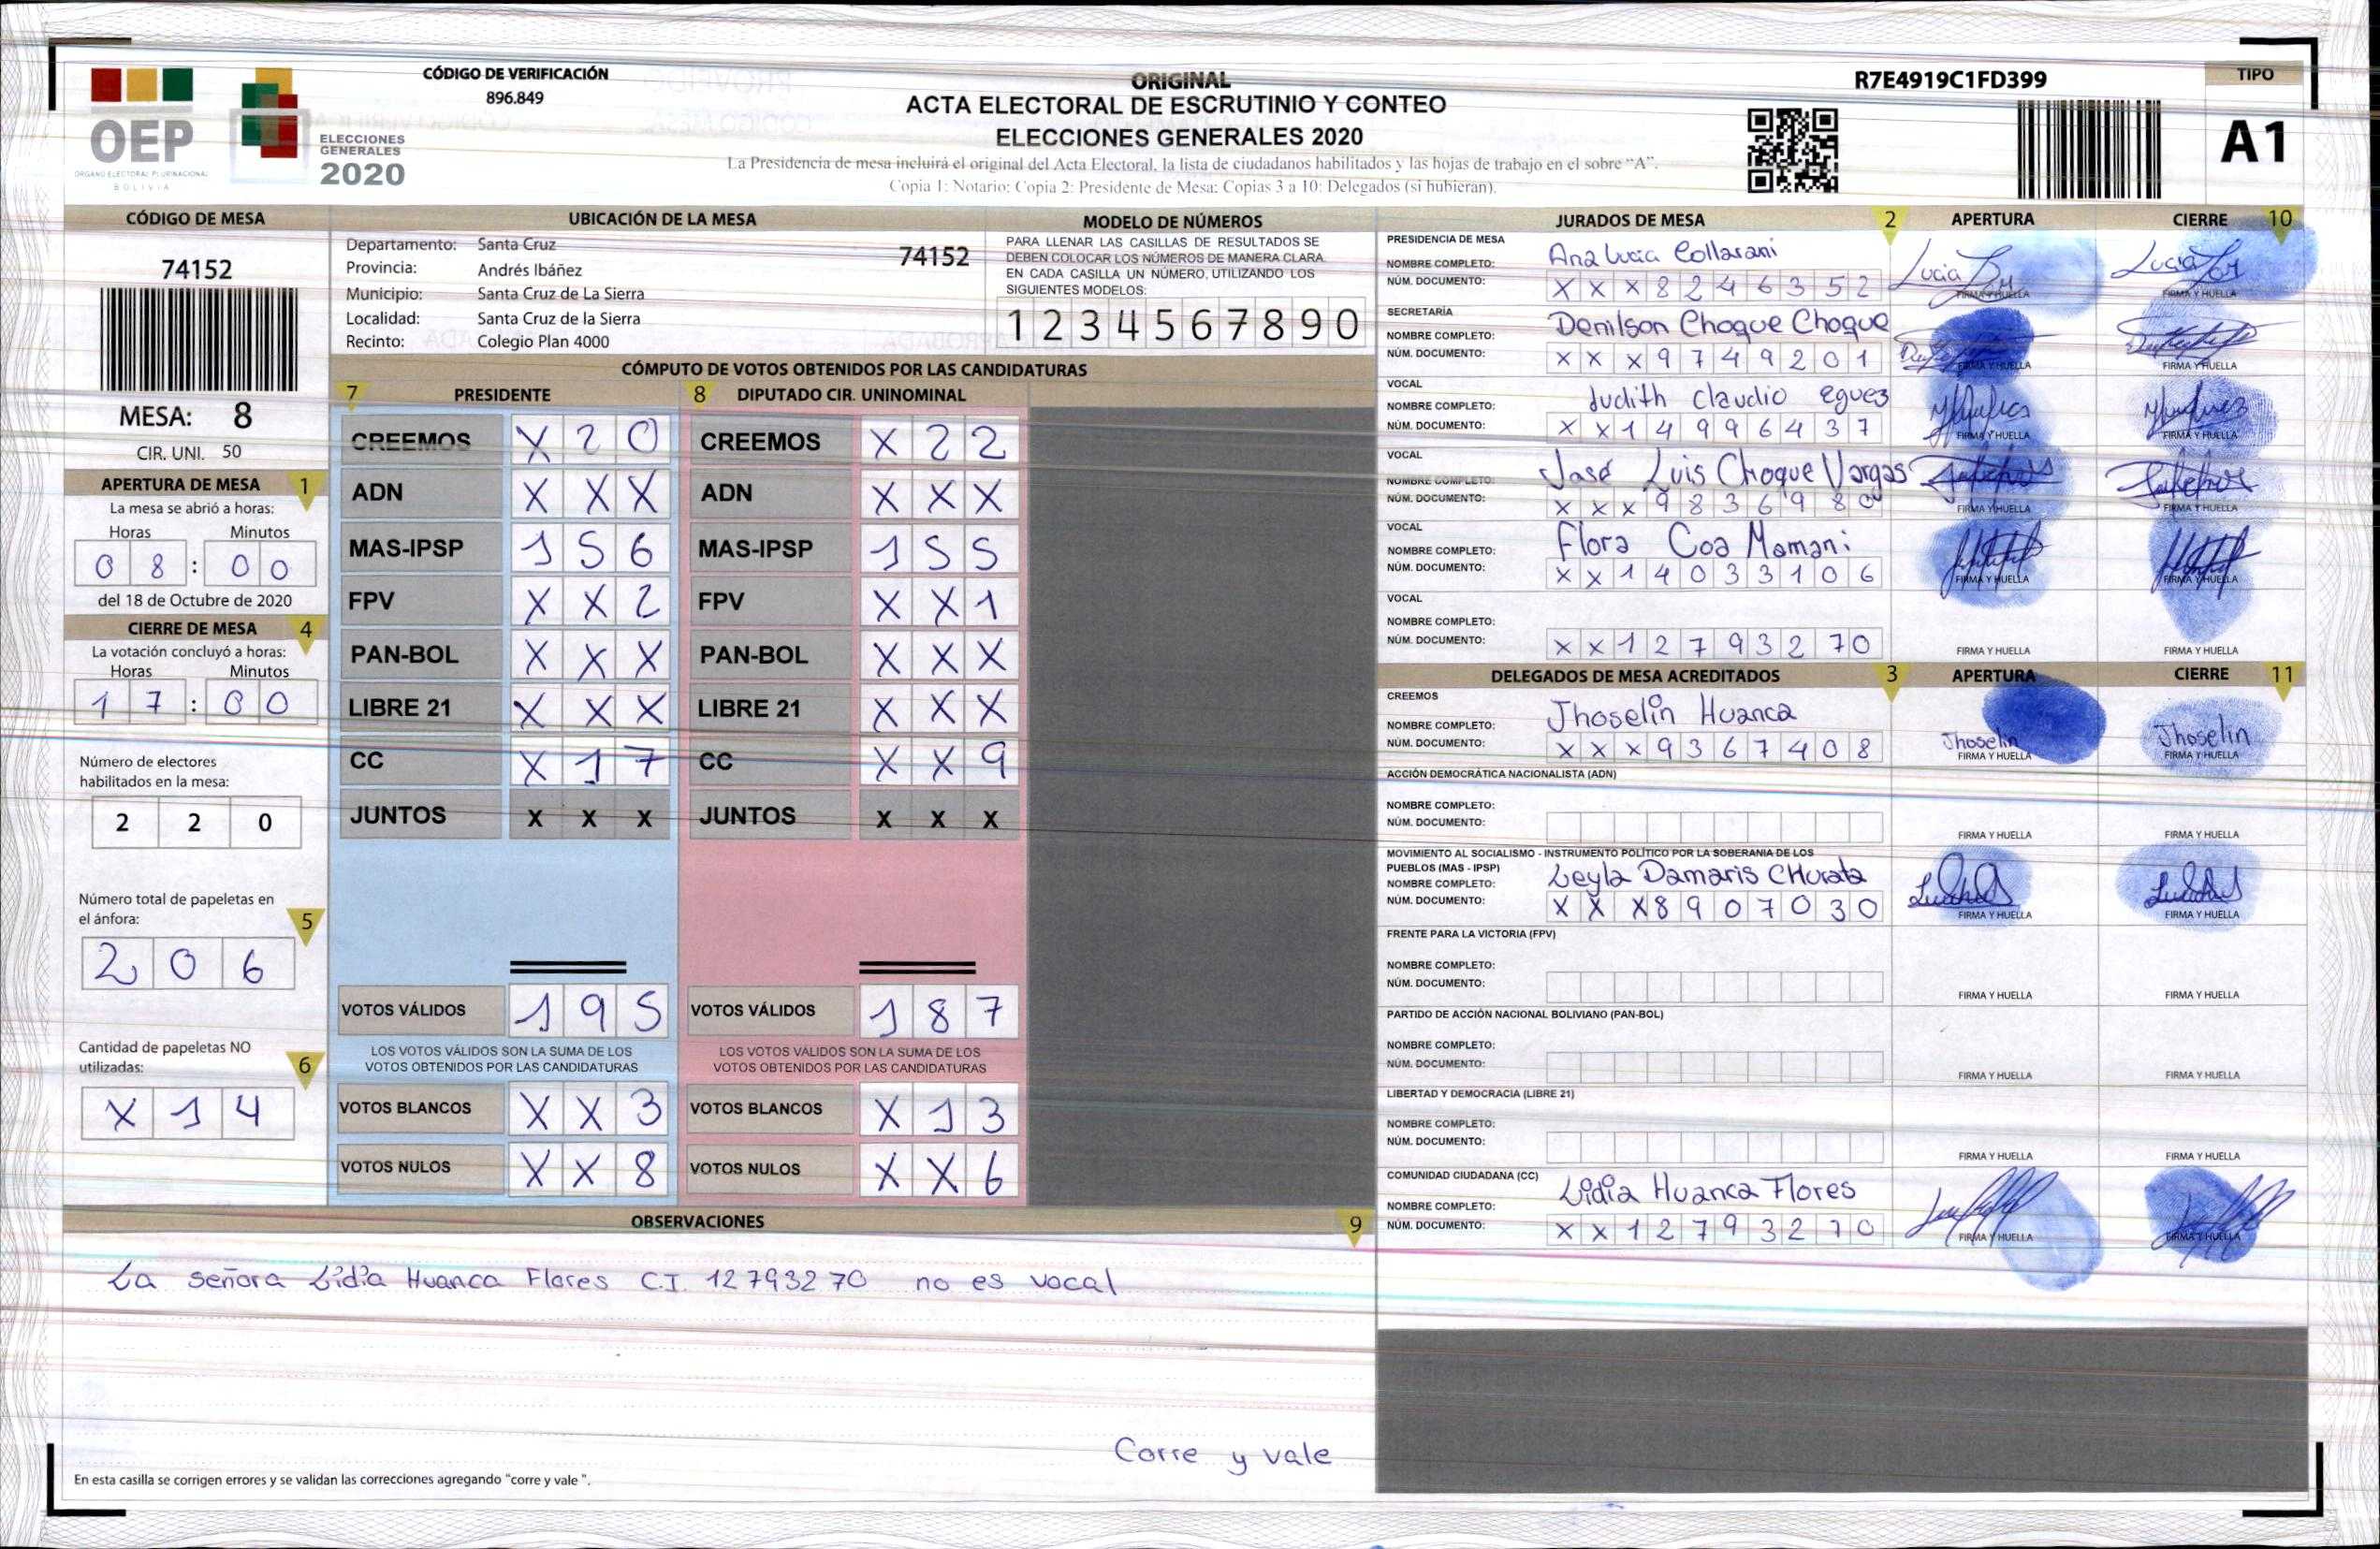 CÓDIGO DE VERIFICACIÓN
896.849
OEP
ÓRGANO ELECTORAL PLURINACIONAL
BOLIVIA
ELECCIONES
GENERALES
2020
ORIGINAL
ACTA ELECTORAL DE ESCRUTINIO Y CONTEO
ELECCIONES GENERALES 2020
La Presidencia de mesa incluirá el original del Acta Electoral, la lista de ciudadanos habilitados y las hojas de trabajo en el sobre “A”.
Copia 1: Notario; Copia 2: Presidente de Mesa; Copias 3 a 10: Delegados (si hubieran).
R7E4919C1FD399
TIPO
A1
CÓDIGO DE MESA
74152
MESA: 8
CIR. UNI. 50
APERTURA DE MESA 1
La mesa se abrió a horas:
Horas Minutos
0 8 : 0 0
del 18 de Octubre de 2020
CIERRE DE MESA 4
La votación concluyó a horas:
Horas Minutos
1 7 : 0 0
Número de electores
habilitados en la mesa:
2 2 0
Número total de papeletas en
el ánfora: 5
2 0 6
Cantidad de papeletas NO
utilizadas: 6
X 1 4
UBICACIÓN DE LA MESA
Departamento: Santa Cruz 74152
Provincia: Andrés Ibáñez
Municipio: Santa Cruz de La Sierra
Localidad: Santa Cruz de la Sierra
Recinto: Colegio Plan 4000
MODELO DE NÚMEROS
PARA LLENAR LAS CASILLAS DE RESULTADOS SE
DEBEN COLOCAR LOS NÚMEROS DE MANERA CLARA
EN CADA CASILLA UN NÚMERO, UTILIZANDO LOS
SIGUIENTES MODELOS:
1 2 3 4 5 6 7 8 9 0
CÓMPUTO DE VOTOS OBTENIDOS POR LAS CANDIDATURAS
7 PRESIDENTE 8 DIPUTADO CIR. UNINOMINAL
CREEMOS X 2 0 CREEMOS X 2 2
ADN X X X ADN X X X
MAS-IPSP 1 5 6 MAS-IPSP 1 5 5
FPV X X 2 FPV X X 1
PAN-BOL X X X PAN-BOL X X X
LIBRE 21 X X X LIBRE 21 X X X
CC X 1 7 CC X X 9
JUNTOS X X X JUNTOS X X X
VOTOS VÁLIDOS 1 9 5 VOTOS VÁLIDOS 1 8 7
LOS VOTOS VÁLIDOS SON LA SUMA DE LOS LOS VOTOS VÁLIDOS SON LA SUMA DE LOS
VOTOS OBTENIDOS POR LAS CANDIDATURAS VOTOS OBTENIDOS POR LAS CANDIDATURAS
VOTOS BLANCOS X X 3 VOTOS BLANCOS X 1 3
VOTOS NULOS X X 8 VOTOS NULOS X X 6
OBSERVACIONES 9
La señora Lidia Huanca Flores C.I. 12793270 no es vocal
Corre y vale
En esta casilla se corrigen errores y se validan las correcciones agregando “corre y vale ”.
JURADOS DE MESA 2 APERTURA CIERRE 10
PRESIDENCIA DE MESA
NOMBRE COMPLETO: Ana Lucia Collarani
NÚM. DOCUMENTO: X X X 8 2 4 6 3 5 2
FIRMA Y HUELLA FIRMA Y HUELLA
SECRETARÍA
NOMBRE COMPLETO: Denilson Choque Choque
NÚM. DOCUMENTO: X X X 9 7 4 9 2 0 1
FIRMA Y HUELLA FIRMA Y HUELLA
VOCAL
NOMBRE COMPLETO: Judith claudio eguez
NÚM. DOCUMENTO: X X 1 4 9 9 6 4 3 7
FIRMA Y HUELLA FIRMA Y HUELLA
VOCAL
NOMBRE COMPLETO: José Luis Choque Vargas
NÚM. DOCUMENTO: X X X 9 8 3 6 9 8 0
FIRMA Y HUELLA FIRMA Y HUELLA
VOCAL
NOMBRE COMPLETO: Flora Coa Mamani
NÚM. DOCUMENTO: X X 1 4 0 3 3 1 0 6
FIRMA Y HUELLA FIRMA Y HUELLA
VOCAL
NOMBRE COMPLETO:
NÚM. DOCUMENTO: X X 1 2 7 9 3 2 7 0
FIRMA Y HUELLA FIRMA Y HUELLA
DELEGADOS DE MESA ACREDITADOS 3 APERTURA CIERRE 11
CREEMOS
NOMBRE COMPLETO: Jhoselin Huanca
NÚM. DOCUMENTO: X X X 9 3 6 7 4 0 8
Jhoselin Jhoselin
FIRMA Y HUELLA FIRMA Y HUELLA
ACCIÓN DEMOCRÁTICA NACIONALISTA (ADN)
NOMBRE COMPLETO:
NÚM. DOCUMENTO:
FIRMA Y HUELLA FIRMA Y HUELLA
MOVIMIENTO AL SOCIALISMO - INSTRUMENTO POLÍTICO POR LA SOBERANIA DE LOS
PUEBLOS (MAS - IPSP)
NOMBRE COMPLETO: Leyla Damaris CHurata
NÚM. DOCUMENTO: X X X 8 9 0 7 0 3 0
FIRMA Y HUELLA FIRMA Y HUELLA
FRENTE PARA LA VICTORIA (FPV)
NOMBRE COMPLETO:
NÚM. DOCUMENTO:
FIRMA Y HUELLA FIRMA Y HUELLA
PARTIDO DE ACCIÓN NACIONAL BOLIVIANO (PAN-BOL)
NOMBRE COMPLETO:
NÚM. DOCUMENTO:
FIRMA Y HUELLA FIRMA Y HUELLA
LIBERTAD Y DEMOCRACIA (LIBRE 21)
NOMBRE COMPLETO:
NÚM. DOCUMENTO:
FIRMA Y HUELLA FIRMA Y HUELLA
COMUNIDAD CIUDADANA (CC)
NOMBRE COMPLETO: Lidia Huanca Flores
NÚM. DOCUMENTO: X X 1 2 7 9 3 2 7 0
FIRMA Y HUELLA FIRMA Y HUELLA